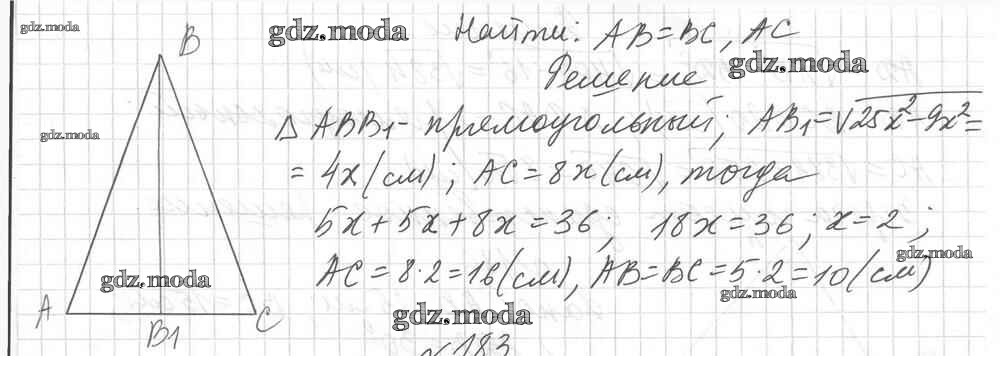 gdz.moda
B
gdz.moda
Найти: AB=BC, AC
Решение
gdz.moda
gdz.moda
Δ ABB₁ - прямоугольный; AB₁=√25x²-9x²=
= 4x(см); AC=8x(см), тогда
5x+5x+8x=36; 18x=36; x=2;
gdz.moda
AC=8·2=16(см), AB=BC=5·2=10(см)
gdz.moda
gdz.moda
A
B1
C
gdz.moda
№183